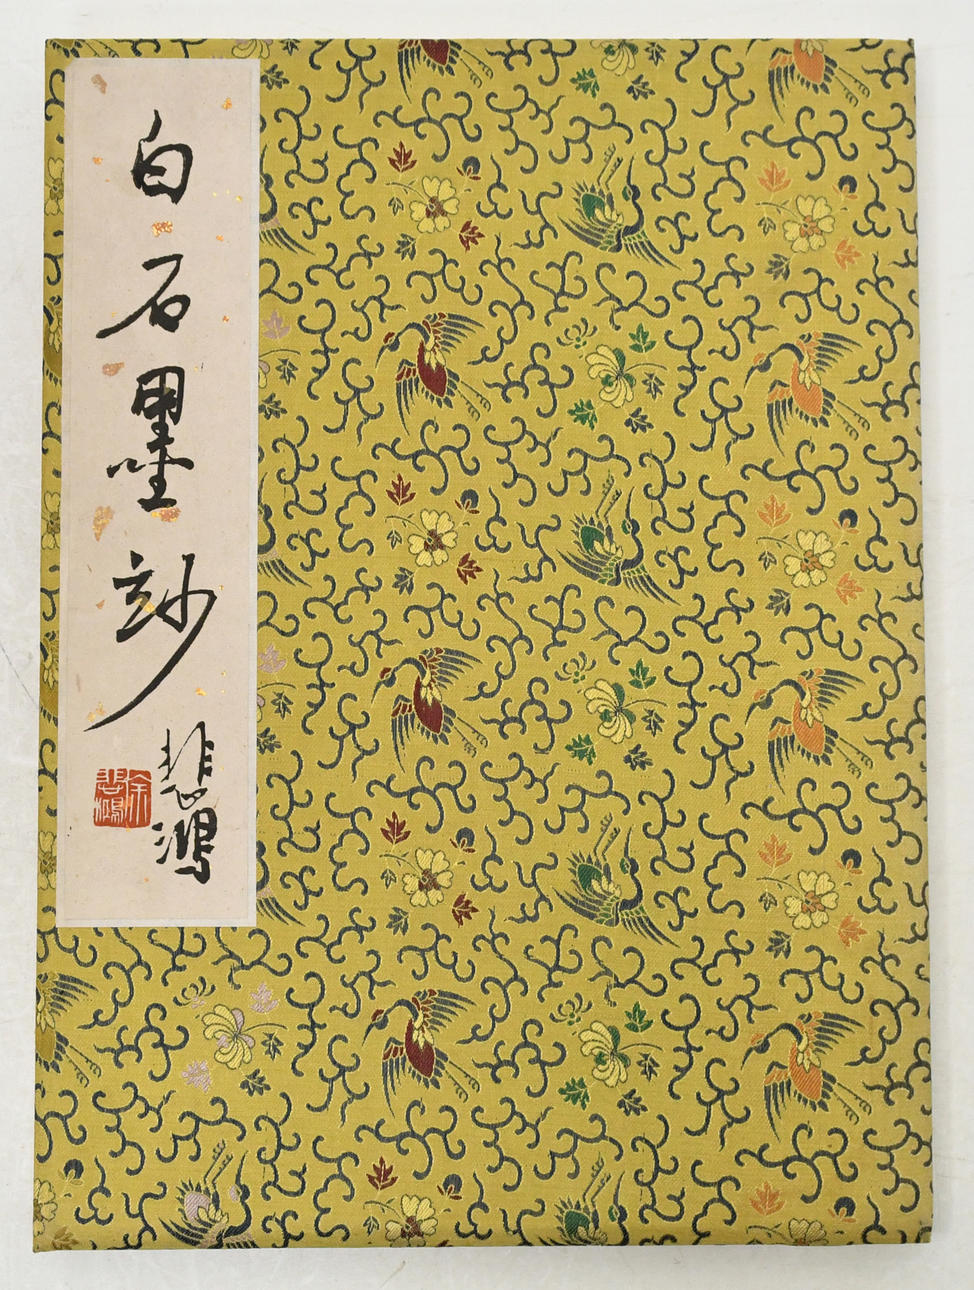 白石墨玅
悲鴻
徐悲鴻